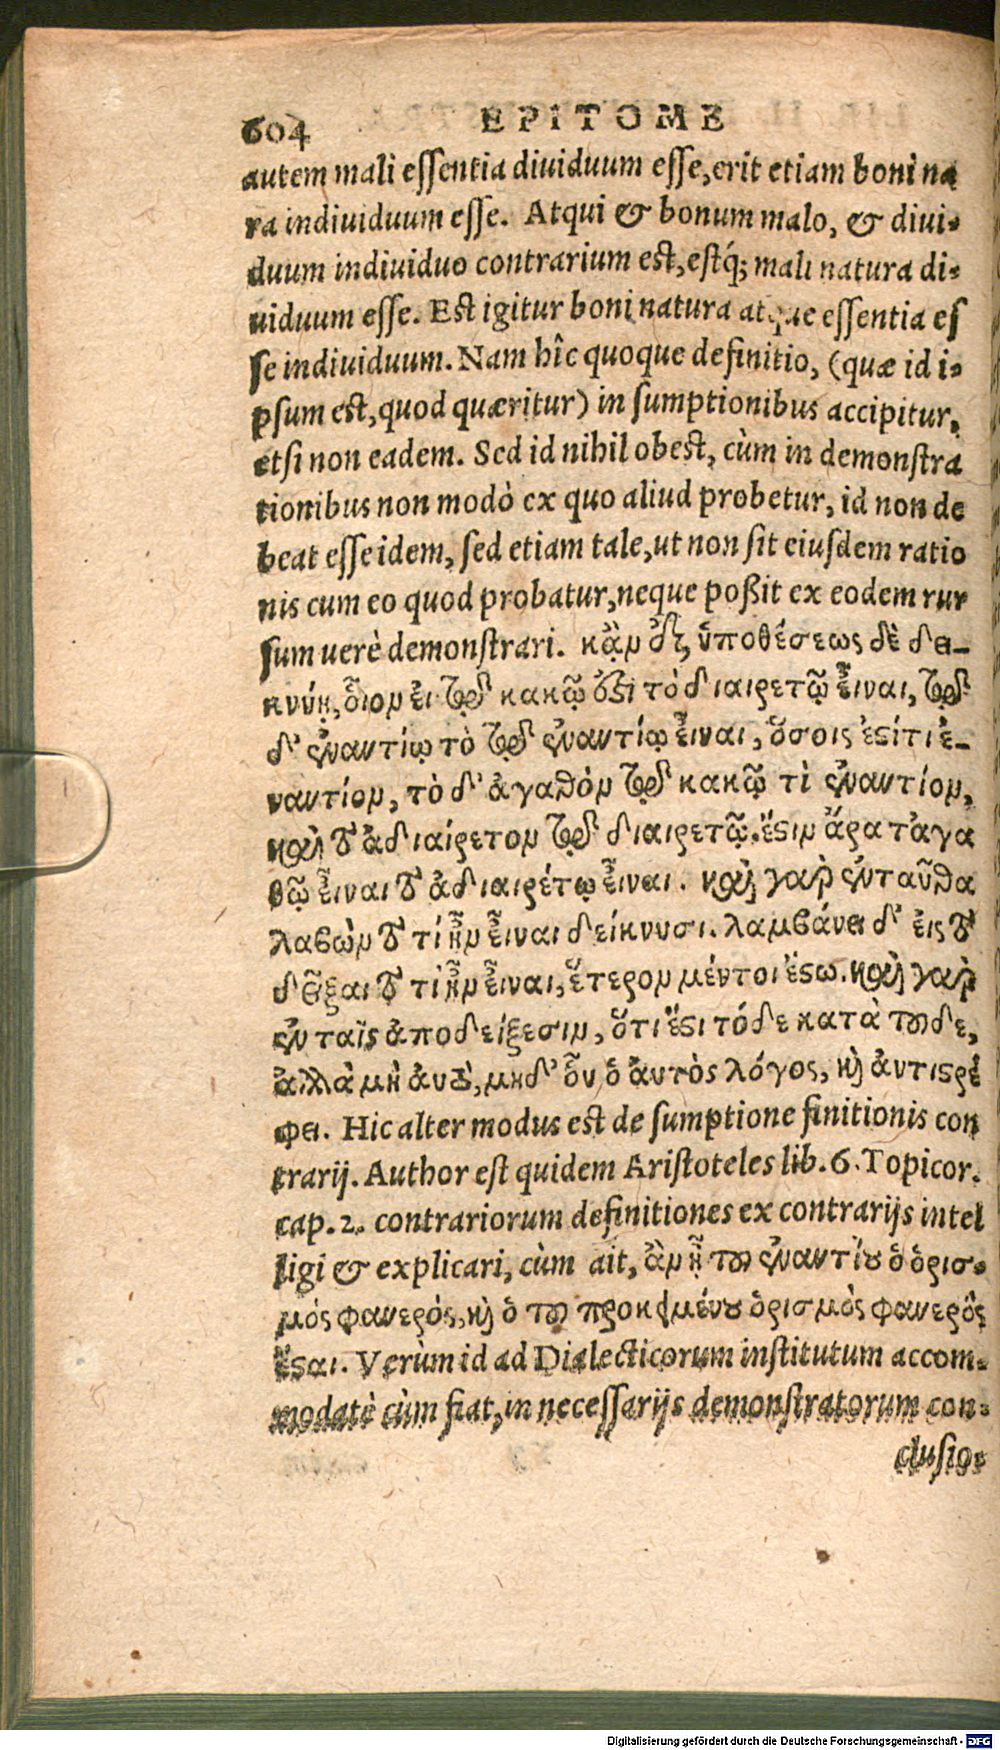 604 EPITOME
autem mali essentia diuiduum esse, erit etiam boni na
ra indiuiduum esse. Atqui & bonum malo, & diui-
duum indiuiduo contrarium est, estq́; mali natura di-
uiduum esse. Est igitur boni natura atque essentia es
se indiuiduum. Nam hîc quoque definitio, (quæ id i-
psum est, quod quæritur) in sumptionibus accipitur,
etsi non eadem. Sed id nihil obest, cùm in demonstra
tionibus non modò ex quo aliud probetur, id non de
beat esse idem, sed etiam tale, ut non sit eiusdem ratio
nis cum eo quod probatur, neque poßit ex eodem rur
sum uerè demonstrari. κἂν ἐξ ὑποθέσεως δὲ δει-
κνύῃ, οἷον εἰ τῷ κακῷ ἐστὶ τὸ διαιρετῷ εἶναι, τῷ
δ' ἐναντίῳ τὸ τῷ ἐναντίῳ εἶναι, ὅσοις ἐστί τι ἐ-
ναντίον, τὸ δ' ἀγαθὸν τῷ κακῷ τὶ ἐναντίον,
καὶ τὸ ἀδιαίρετον τῷ διαιρετῷ. ἔστιν ἄρα τἀγα
θῷ εἶναι τὸ ἀδιαιρέτῳ εἶναι. καὶ γαρ ἐνταῦθα
λαβὼν τὸ τί ἦν εἶναι δείκνυσι. λαμβάνει δ' εἰς τὸ
δεῖξαι τὸ τί ἦν εἶναι, ἕτερον μέντοι ἔστω. καὶ γαρ
ἐν ταῖς ἀποδείξεσιν, ὅτι ἔστι τόδε κατὰ τοῦδε,
ἀλλὰ μὴ αυτὸ, μηδ' οὗ ὁ αὐτὸς λόγος, καὶ ἀντιστρέ
φει. Hic alter modus est de sumptione finitionis con
trarij. Author est quidem Aristoteles lib. 6. Topicor.
cap. 2. contrariorum definitiones ex contrarijs intel
ligi & explicari, cùm ait, ἂν ᾖ τοῦ ἐναντίου ὁ ὁρισ-
μός φανερός, καὶ ὁ τοῦ προκειμένου ὁρισμὸς φανερὸς
ἔσται. Verùm id ad Dialecticorum institutum accom-
modatè cùm fiat, in necessarijs demonstratorum con-
clusio-
Digitalisierung gefördert durch die Deutsche Forschungsgemeinschaft - DFG